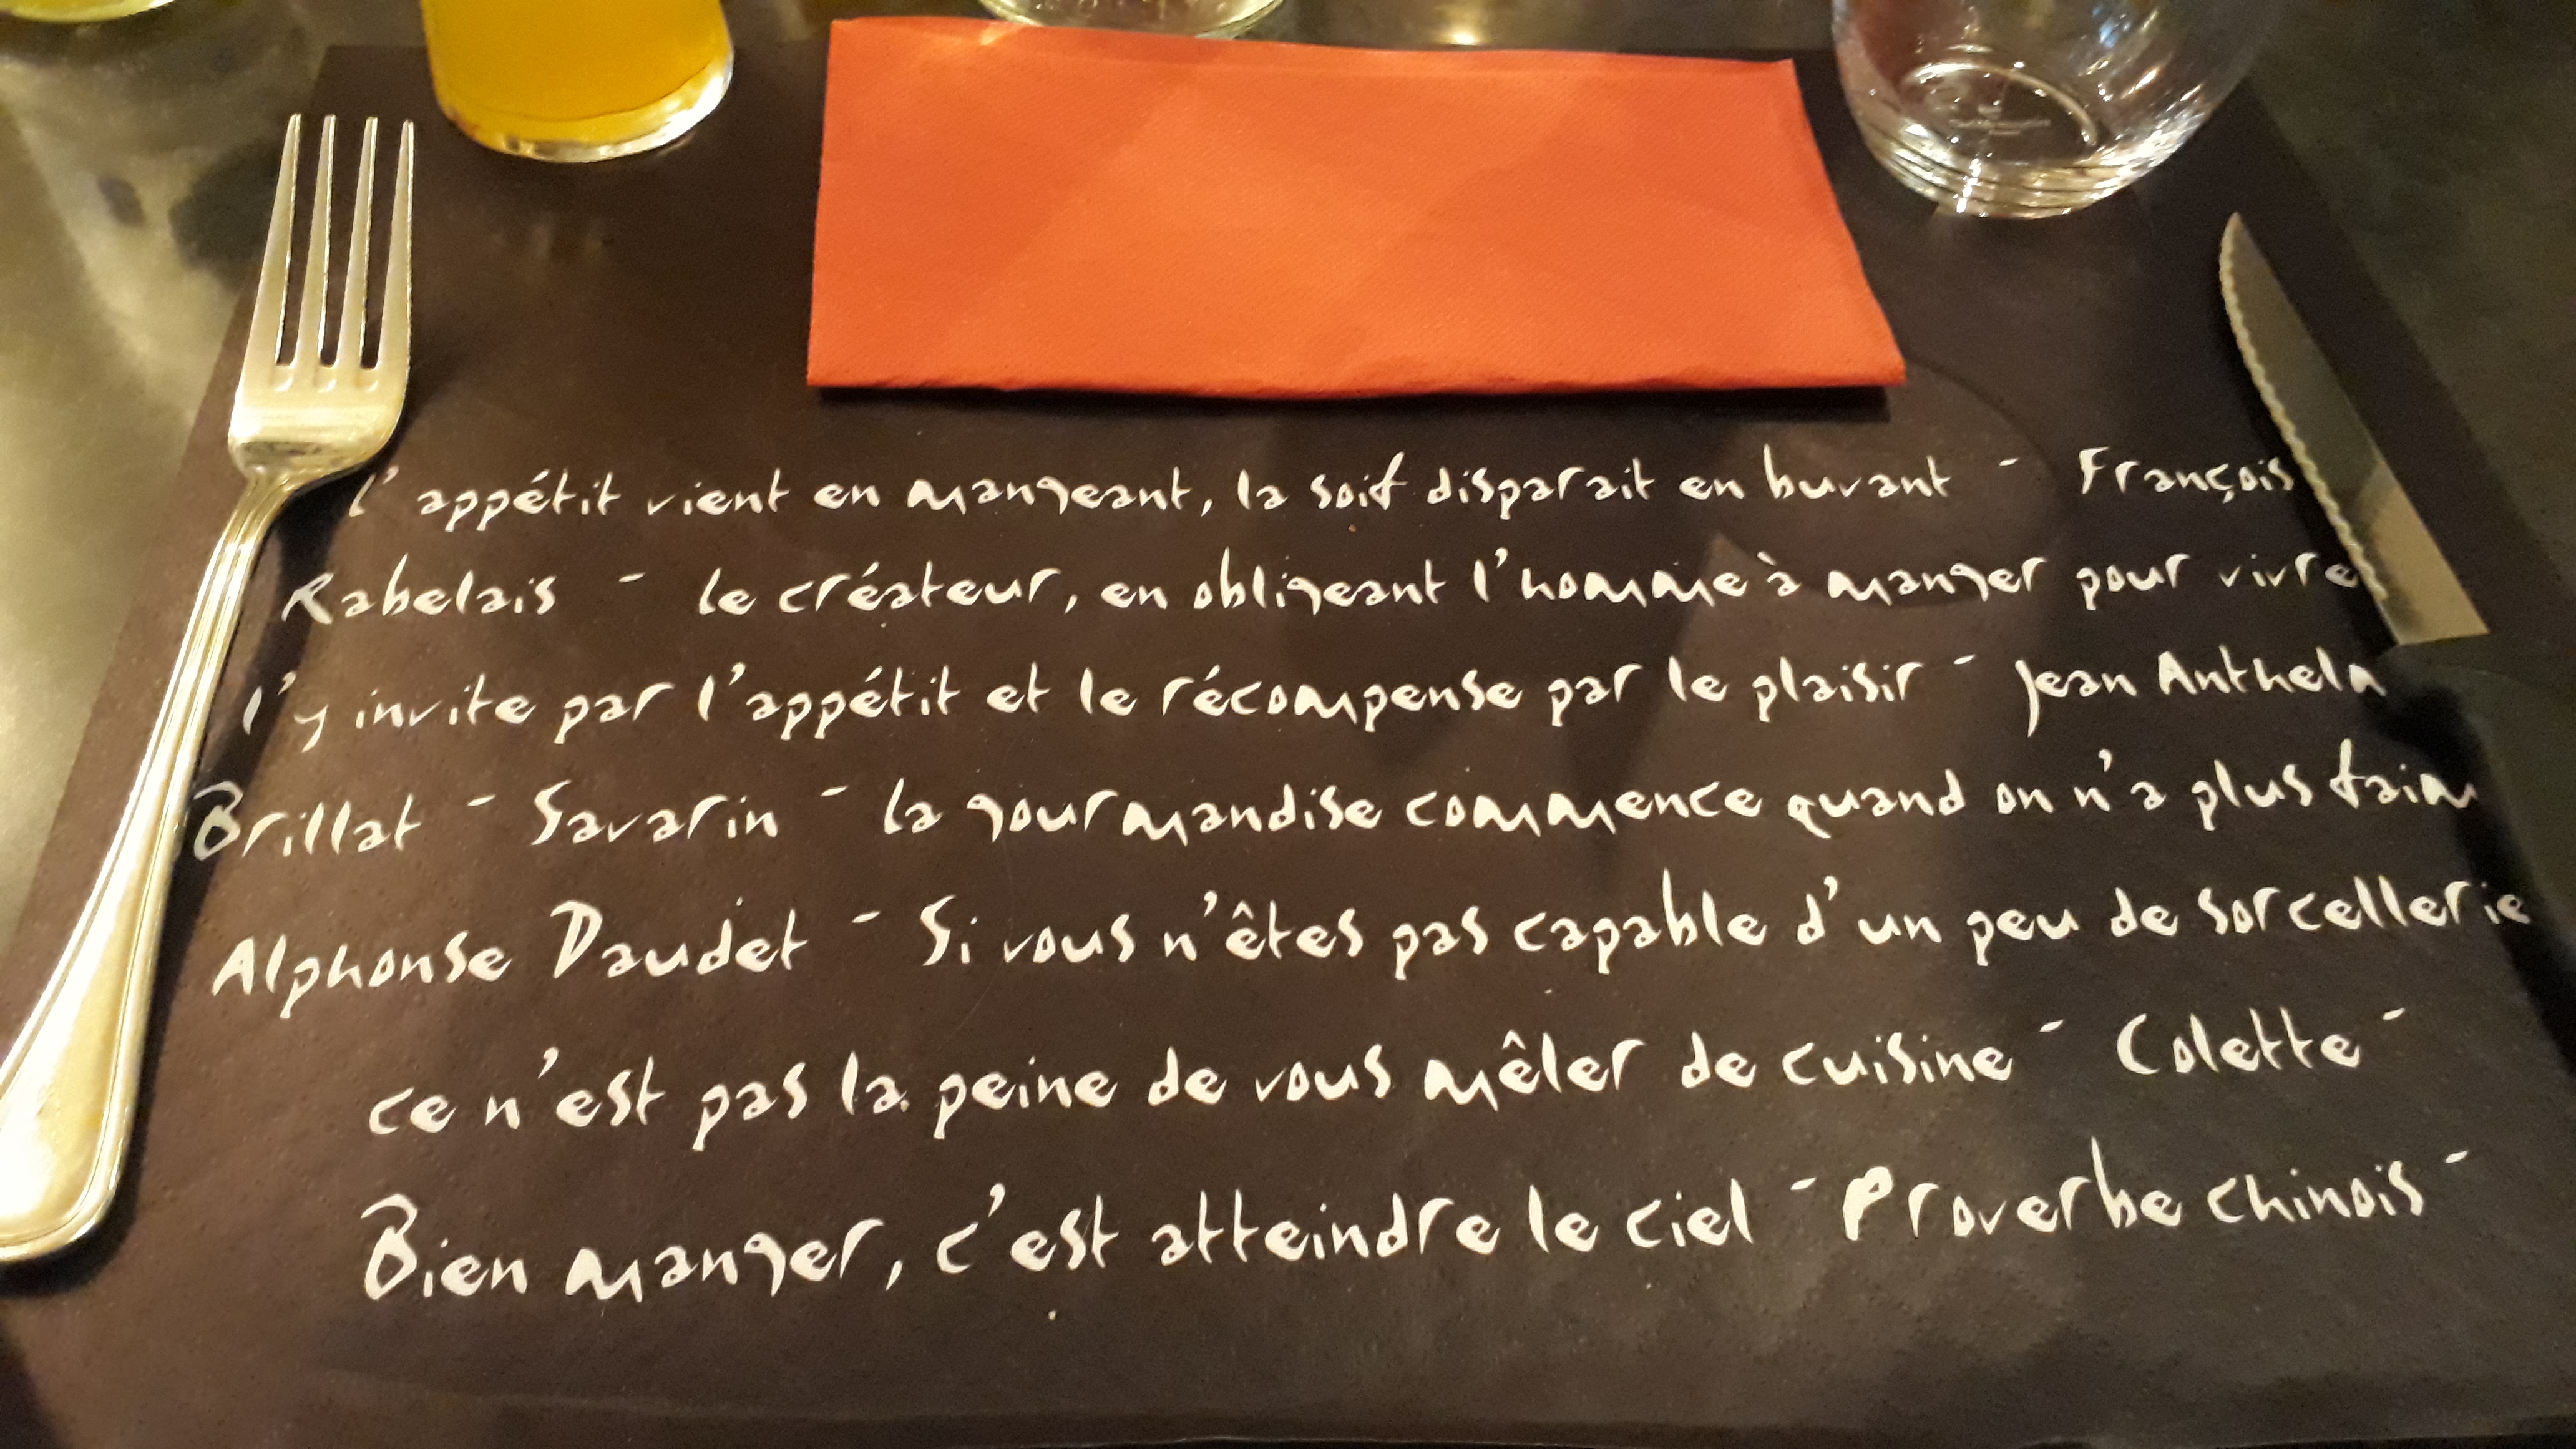 l'appétit vient en mangeant, la soif disparait en buvant - François
Rabelais - le créateur, en obligeant l'homme à manger pour vivre
l'y invite par l'appétit et le récompense par le plaisir - Jean Anthelm
Brillat - Savarin - la gourmandise commence quand on n'a plus faim
Alphonse Daudet - Si vous n'êtes pas capable d'un peu de sorcellerie
ce n'est pas la peine de vous mêler de cuisine - Colette -
Bien manger, c'est atteindre le ciel - Proverbe chinois -